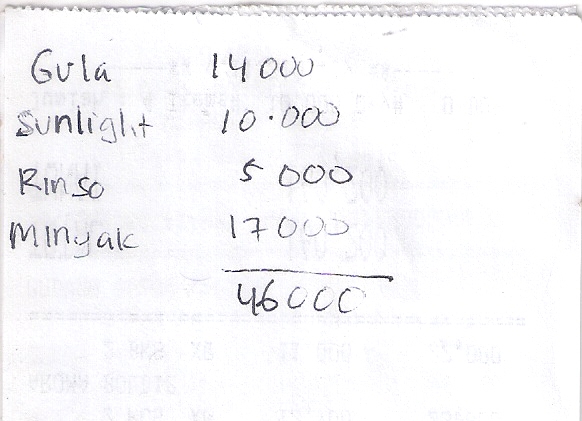 Gula 14000
Sunlight 10.000
Rinso 5000
Minyak 17000
46000